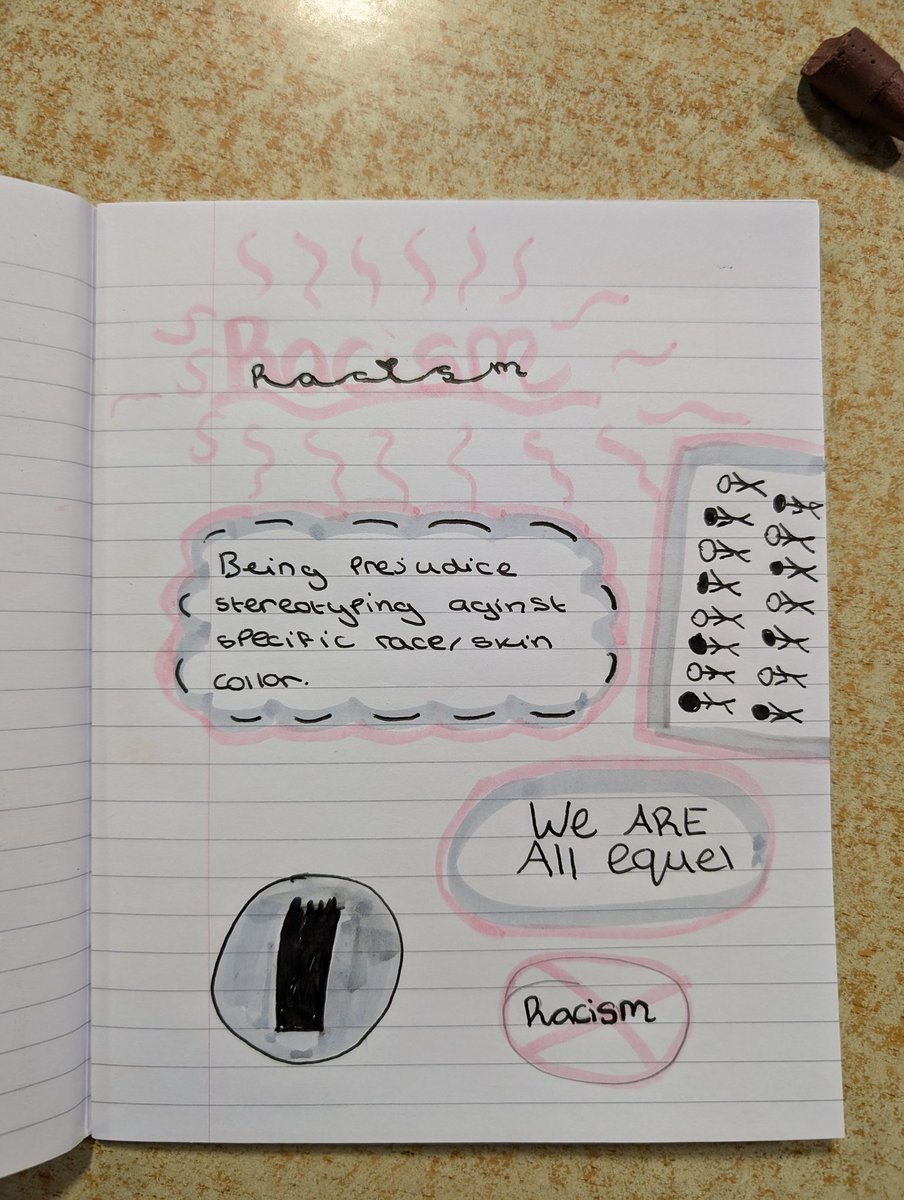 Racism
Racism
Being prejudice
stereotyping aginst
specific race/skin
collor.
We ARE
All equel
Racism